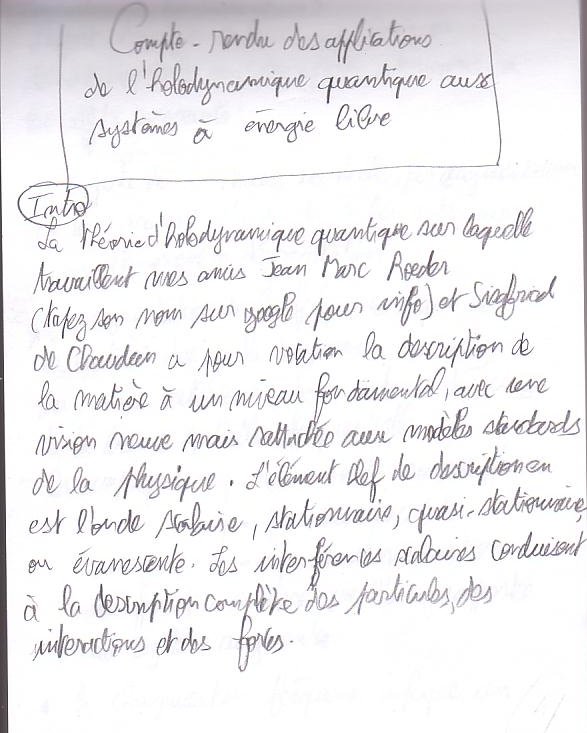 Compte-rendu des applications
de l'holodynamique quantique aux
systèmes à énergie libre
Intro
La théorie d'holodynamique quantique sur laquelle
travaillent mes amis Jean Marc Roeder
(tapez son nom sur google pour info) et Siegfried
de a pour votation la description de
la matière à un niveau fondamental, avec une
vision neuve mais rattachée aux modèles standards
de la physique. L'élément clef de description en
est l'onde scalaire, stationnaire, quasi-stationnaire,
ou évanescente. Les interférences scalaires conduisent
à la description complète des particules, des
interactions et des forces.